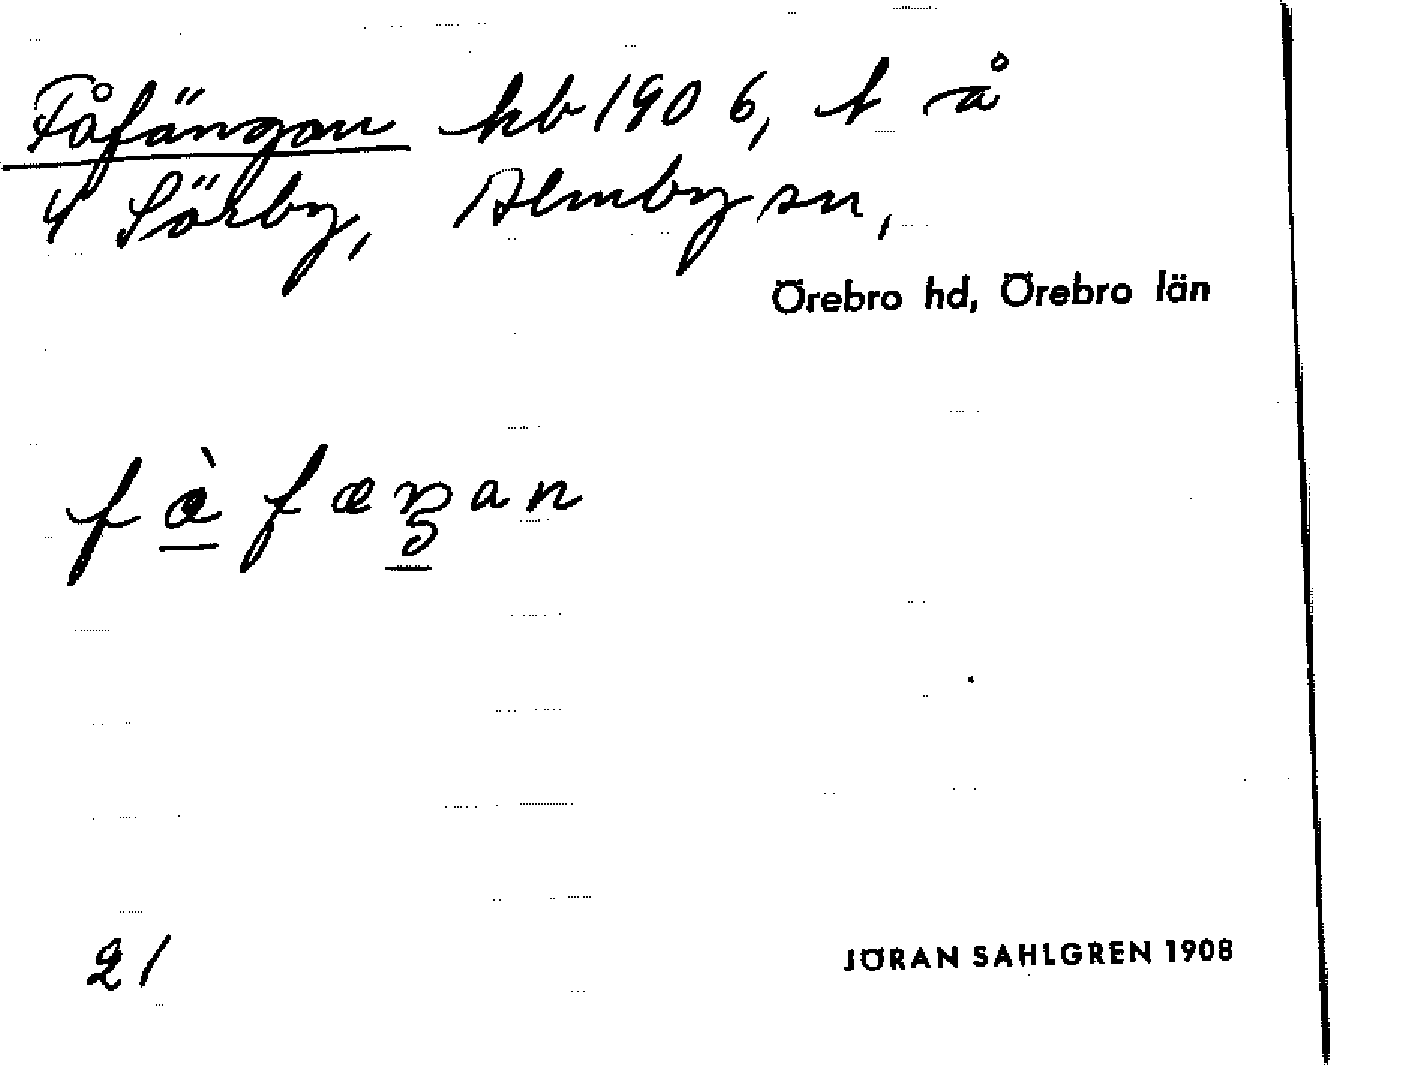 Fåfängan kb 1906, t å
4 Sörby, Almby sn,
Örebro hd, Örebro län
fàfæŋan
21
JÖRAN SAHLGREN 1908